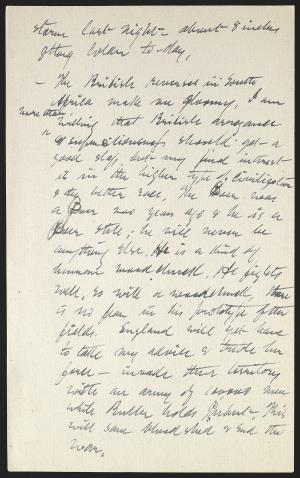 storm last night - about 8 inches
getting colder to-day.
- The British reverses in South
Africa make me gloomy, I am
more than
willing that British arrogance
& superciliousness should get a
good slap, but my fund interest
is in the higher type of civilization
& they better race, The Boer was
a Boer 200 years ago & he is a
Boer still; he will never be
anything else. He is a kind of
human woodchuck. He fights
well, so will a woodchuck, there
is no fear in his prototype of the
fields. England will yet have
to take my advice & strike her
foe - invade their territory
with an army of 100000 men
while Buller holds Joubert. This
will save blood shed & end the
war.